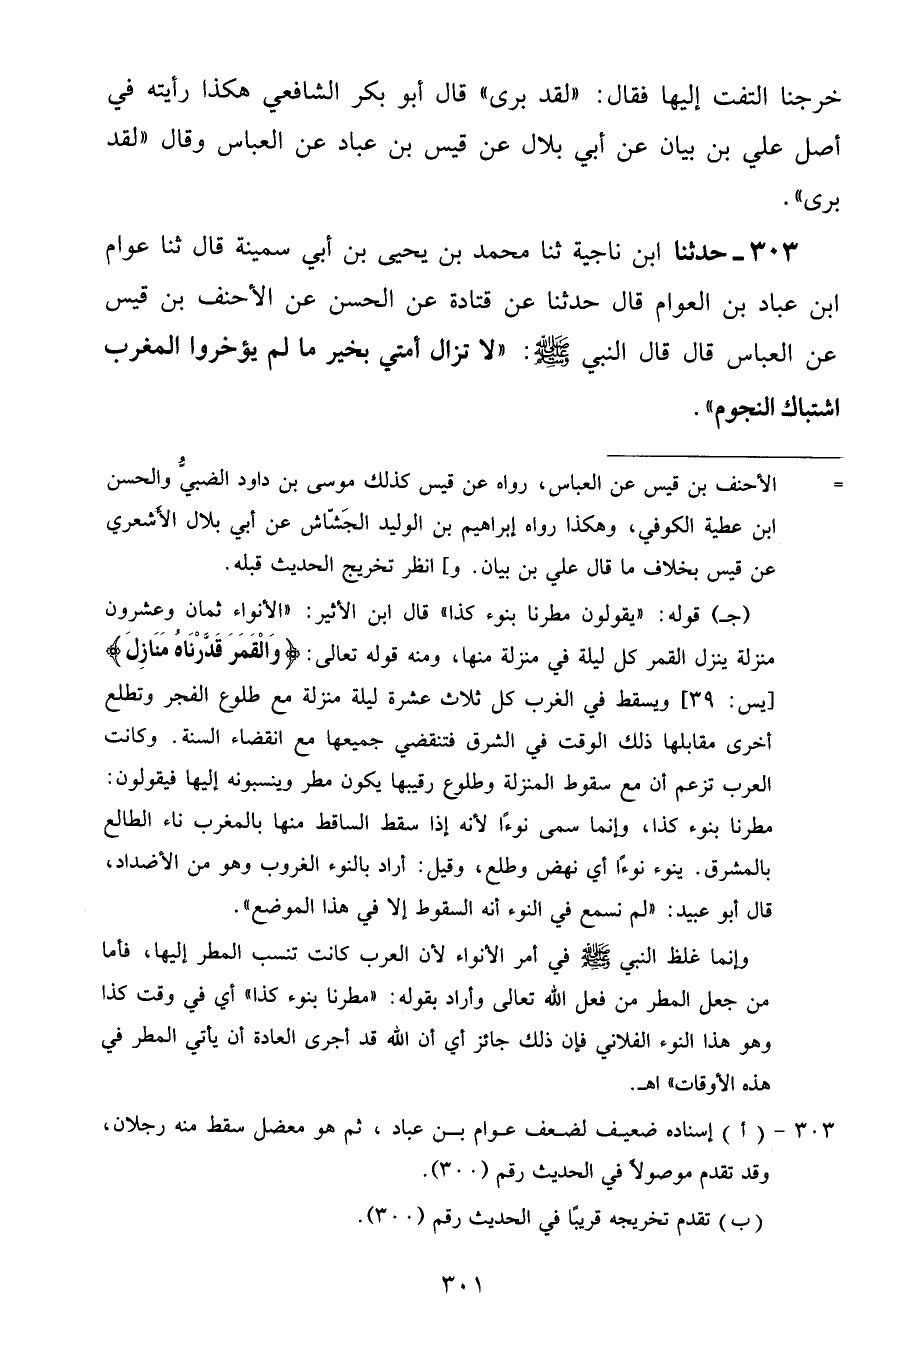 خرجنا التفت إليها فقال: «لقد برى» قال أبو بكر الشافعي هكذا رأيته في
أصل علي بن بيان عن أبي بلال عن قيس بن عباد عن العباس وقال «لقد
برى».
٣٠٣ ـ حدثنا ابن ناجية ثنا محمد بن يحيى بن أبي سمينة قال ثنا عوام
ابن عباد بن العوام قال حدثنا عن قتادة عن الحسن عن الأحنف بن قيس
عن العباس قال قال النبي ﷺ: «لا تزال أمتي بخير ما لم يؤخروا المغرب
اشتباك النجوم».
= الأحنف بن قيس عن العباس، رواه عن قيس كذلك موسى بن داود الضبيُّ والحسن
ابن عطية الكوفي، وهكذا رواه إبراهيم بن الوليد الجَشّاش عن أبي بلال الأشعري
عن قيس بخلاف ما قال علي بن بيان. و] انظر تخريج الحديث قبله.
(جـ) قوله: «يقولون مطرنا بنوء كذا» قال ابن الأثير: «الأنواء ثمان وعشرون
منزلة ينزل القمر كل ليلة في منزلة منها، ومنه قوله تعالى: ﴿وَالْقَمَرَ قَدَّرْنَاهُ مَنَازِلَ﴾
[يس: ٣٩] ويسقط في الغرب كل ثلاث عشرة ليلة منزلة مع طلوع الفجر وتطلع
أخرى مقابلها ذلك الوقت في الشرق فتنقضي جميعها مع انقضاء السنة. وكانت
العرب تزعم أن مع سقوط المنزلة وطلوع رقيبها يكون مطر وينسبونه إليها فيقولون:
مطرنا بنوء كذا، وإنما سمى نوءًا لأنه إذا سقط الساقط منها بالمغرب ناء الطالع
بالمشرق. ينوء نوءًا أي نهض وطلع، وقيل: أراد بالنوء الغروب وهو من الأضداد،
قال أبو عبيد: «لم نسمع في النوء أنه السقوط إلا في هذا الموضع».
وإنما غلظ النبي ﷺ في أمر الأنواء لأن العرب كانت تنسب المطر إليها، فأما
من جعل المطر من فعل الله تعالى وأراد بقوله: «مطرنا بنوء كذا» أي في وقت كذا
وهو هذا النوء الفلاني فإن ذلك جائز أي أن الله قد أجرى العادة أن يأتي المطر في
هذه الأوقات» اهـ.
٣٠٣ - ( أ ) إسناده ضعيف لضعف عوام بن عباد ، ثم هو معضل سقط منه رجلان،
وقد تقدم موصولاً في الحديث رقم (٣٠٠).
(ب) تقدم تخريجه قريبًا في الحديث رقم (٣٠٠).
٣٠١